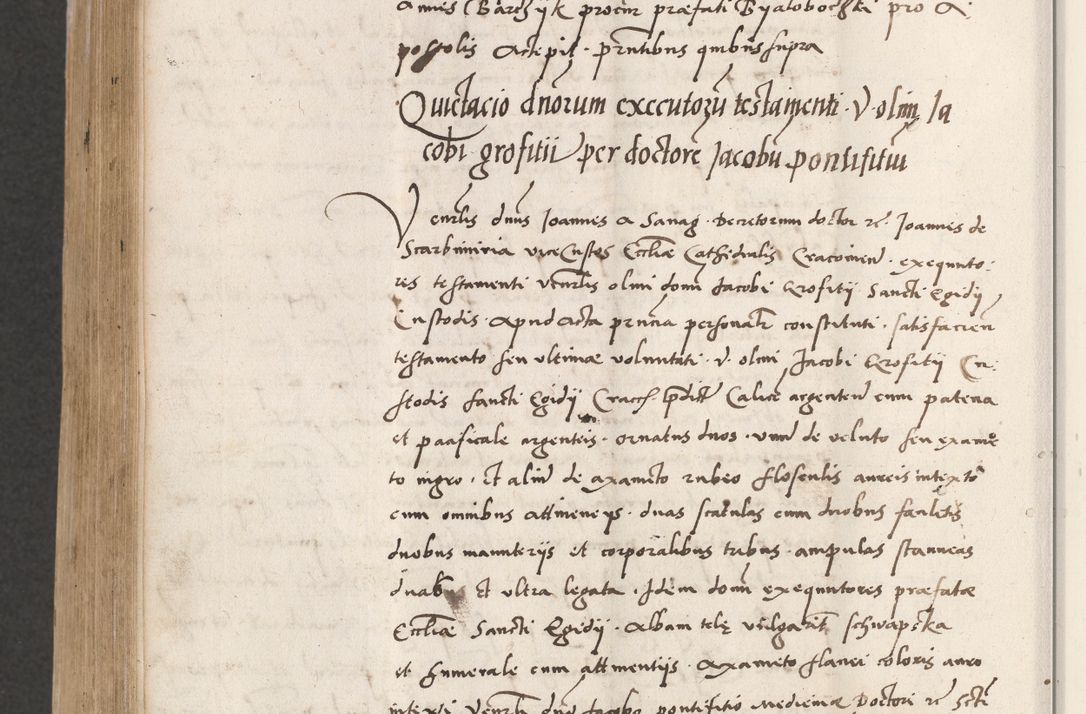 annes Barczyk procur praefati Byalobocski pro A
possolis Actepit. prntibus quibus supra
Quietacio dnorum executorū testamenti. V. olim Ia
cobi grofitii per doctorē Jacobū pontifitiū
Venrlis dnus Joannes a Sanag. Decretorum doctor et Joannes de
Scarbimiria vicecustos Eccliae Cathedralis Cracovien. exequuto:
res testamenti venrlis olim domi Jacobi Grofitii Sancti Egidij
Custodis. Apud Acta prncia personalr constituti. satisfacien
testamento seu ultimae voluntati. v. olim Jacobi Grofitii Cu:
stodis sancti Egidij Cracc prdict Calicē argenteū cum patena
et paasicale argenteis. ornatus duos. unū de veluto seu exame
to nigro. Et aliū de axameto rubeo flosculis aureis intexto
cum omnibus attinencys. duas scatulas cum duobus faculetis
duobus manuterijs et corporalibus tribus. ampulas stanneas
duab. et ultra legata. Idem domi exequutores praefatae
Eccliae Sancti Egidij. Albam telę vulgarit schwapska
et humerale cum attinentijs. Axameto flavei coloris aureo
intexti Venrli dno Jacobo pontifitio Medicinae Doctori et Scti